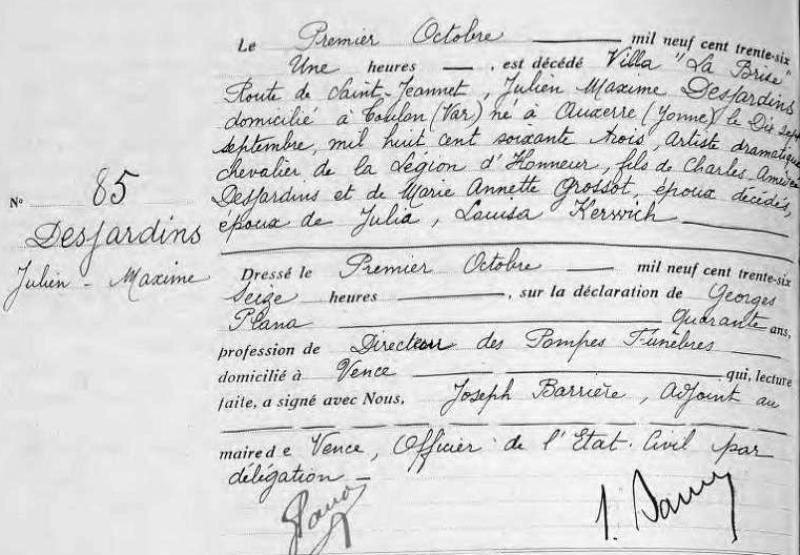 Le Premier Octobre mil neuf cent trente-six
Une heures, est décédé Villa "La Brise"
Route de Saint-Jeannet, Julien Maxime Desjardins
domicilié à Toulon (Var) né à Auxerre (Yonne) le Dix Sept
septembre, mil huit cent soixante trois, artiste dramatique
chevalier de la Légion d'Honneur, fils de Charles
N° 85
Desjardins et de Marie Annette Grossot, époux décédés,
Desjardins
époux de Julia, Louisa Kerwich
Julien - Maxime
Dressé le Premier Octobre mil neuf cent trente-six
Seize heures, sur la déclaration de Georges
Plana Quarante ans,
profession de Directeur des Pompes Funèbres
domicilié à Vence qui, lecture
faite, a signé avec Nous, Joseph Barrière, Adjoint au
maire de Vence, Officier de l'Etat-Civil par
délégation -